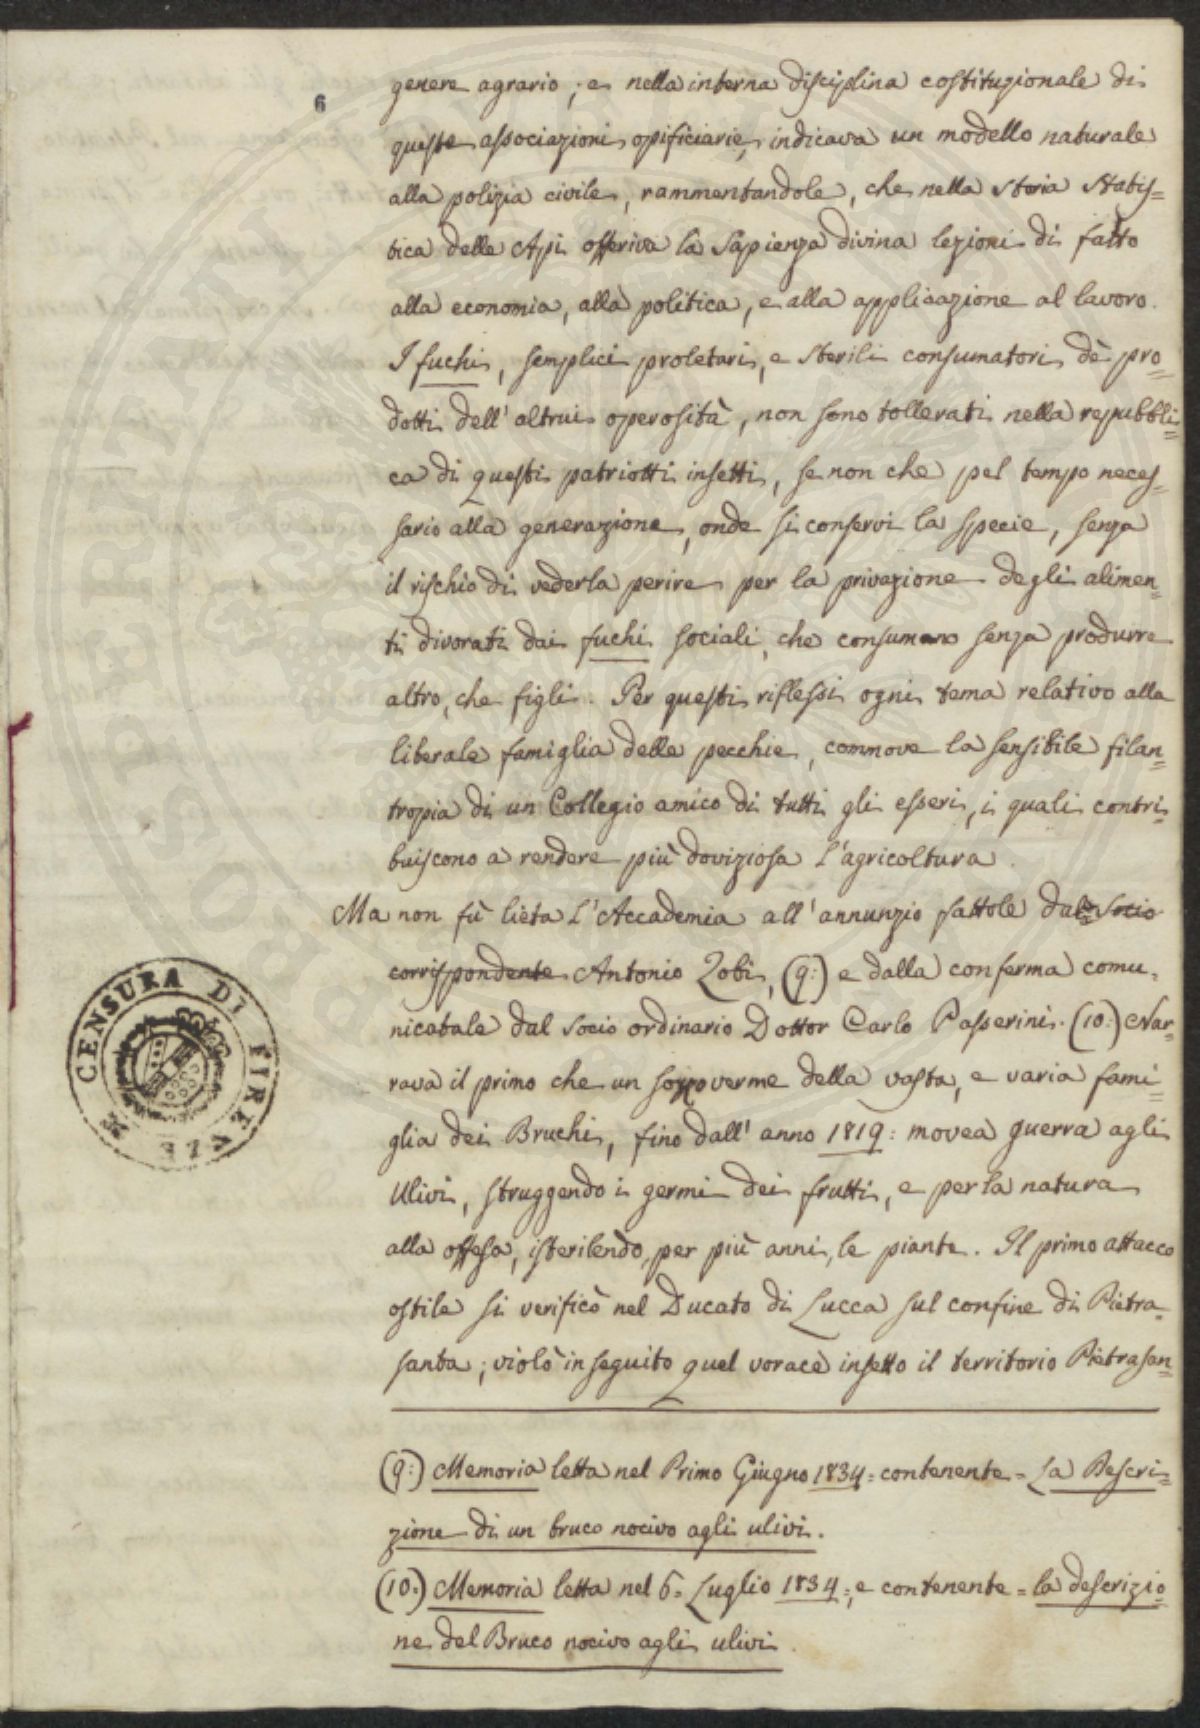 6
genere agrario; e nella interna disciplina costituzionale di
queste associazioni opificiarie, indicava un modello naturale
alla polizia civile, rammentandole, che nella storia statis=
tica delle Api offeriva la sapienza divina lezioni di fatto
alla economia, alla politica, e alla applicazione al lavoro.
I fuchi, semplici proletari, e sterili consumatori de' pro=
dotti dell'altrui operosità, non sono tollerati nella repubbli=
ca di questi patriotti insetti, se non che pel tempo neces=
sario alla generazione, onde si conservi la specie, senza
il rischio di vederla perire per la privazione degli alimen=
ti divorati dai fuchi sociali, che consumano senza produrre
altro, che figli. Per questi riflessi ogni tema relativo alla
liberale famiglia delle pecchie, commove la sensibile filan=
tropia di un Collegio amico di tutti gli esseri, i quali contri=
buiscono a rendere più doviziosa l'agricoltura.
Ma non fù lieta l'Accademia all'annunzio fattole dal Socio
corrispondente Antonio Zobi, (9:) e dalla conferma comu=
nicatale dal socio ordinario Dottor Carlo Passerini. (10:) Nar=
rava il primo che un verme della vasta, e varia fami=
glia dei Bruchi, fino dall'anno 1819: movea guerra agli
Ulivi, struggendo i germi dei frutti, e per la natura
alla offesa, isterilendo, per più anni, le piante. Il primo attacco
ostile si verificò nel Ducato di Lucca sul confine di Pietra=
santa; violò in seguito quel vorace insetto il territorio Pietrasan=
(9:) Memoria letta nel Primo Giugno 1834= contenente= La Descri=
zione di un bruco nocivo agli ulivi.
(10:) Memoria letta nel 6= Luglio 1834=, e contenente= la descrizio=
ne del Bruco nocivo agli ulivi.
CENSURA DI FIRENZE